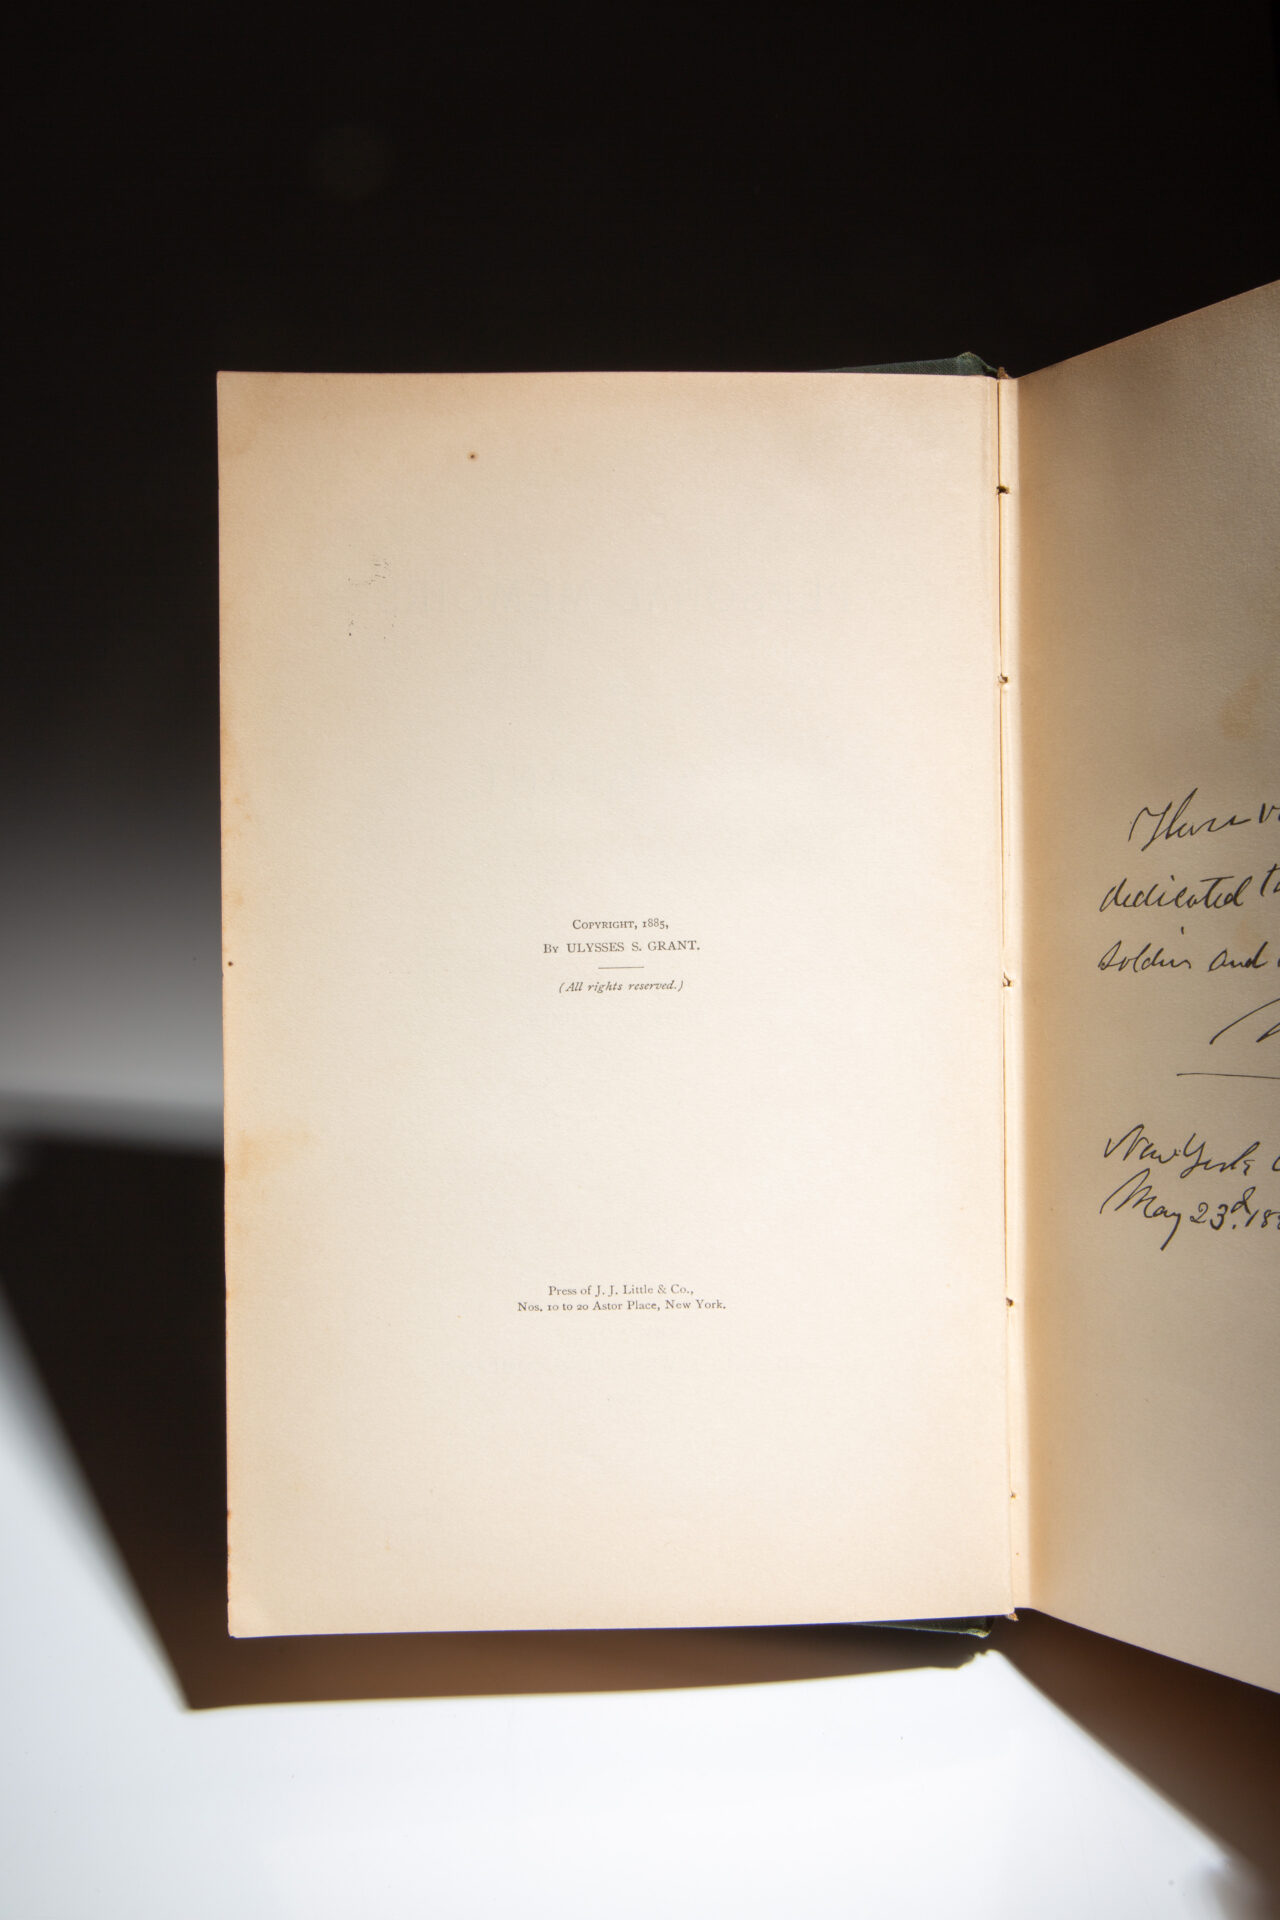 COPYRIGHT, 1885,
BY ULYSSES S. GRANT.
(All rights reserved.)
Press of J. J. Little & Co.,
Nos. 10 to 20 Astor Place, New York.
These
dedicated
soldier and
New York
May 23d. 188